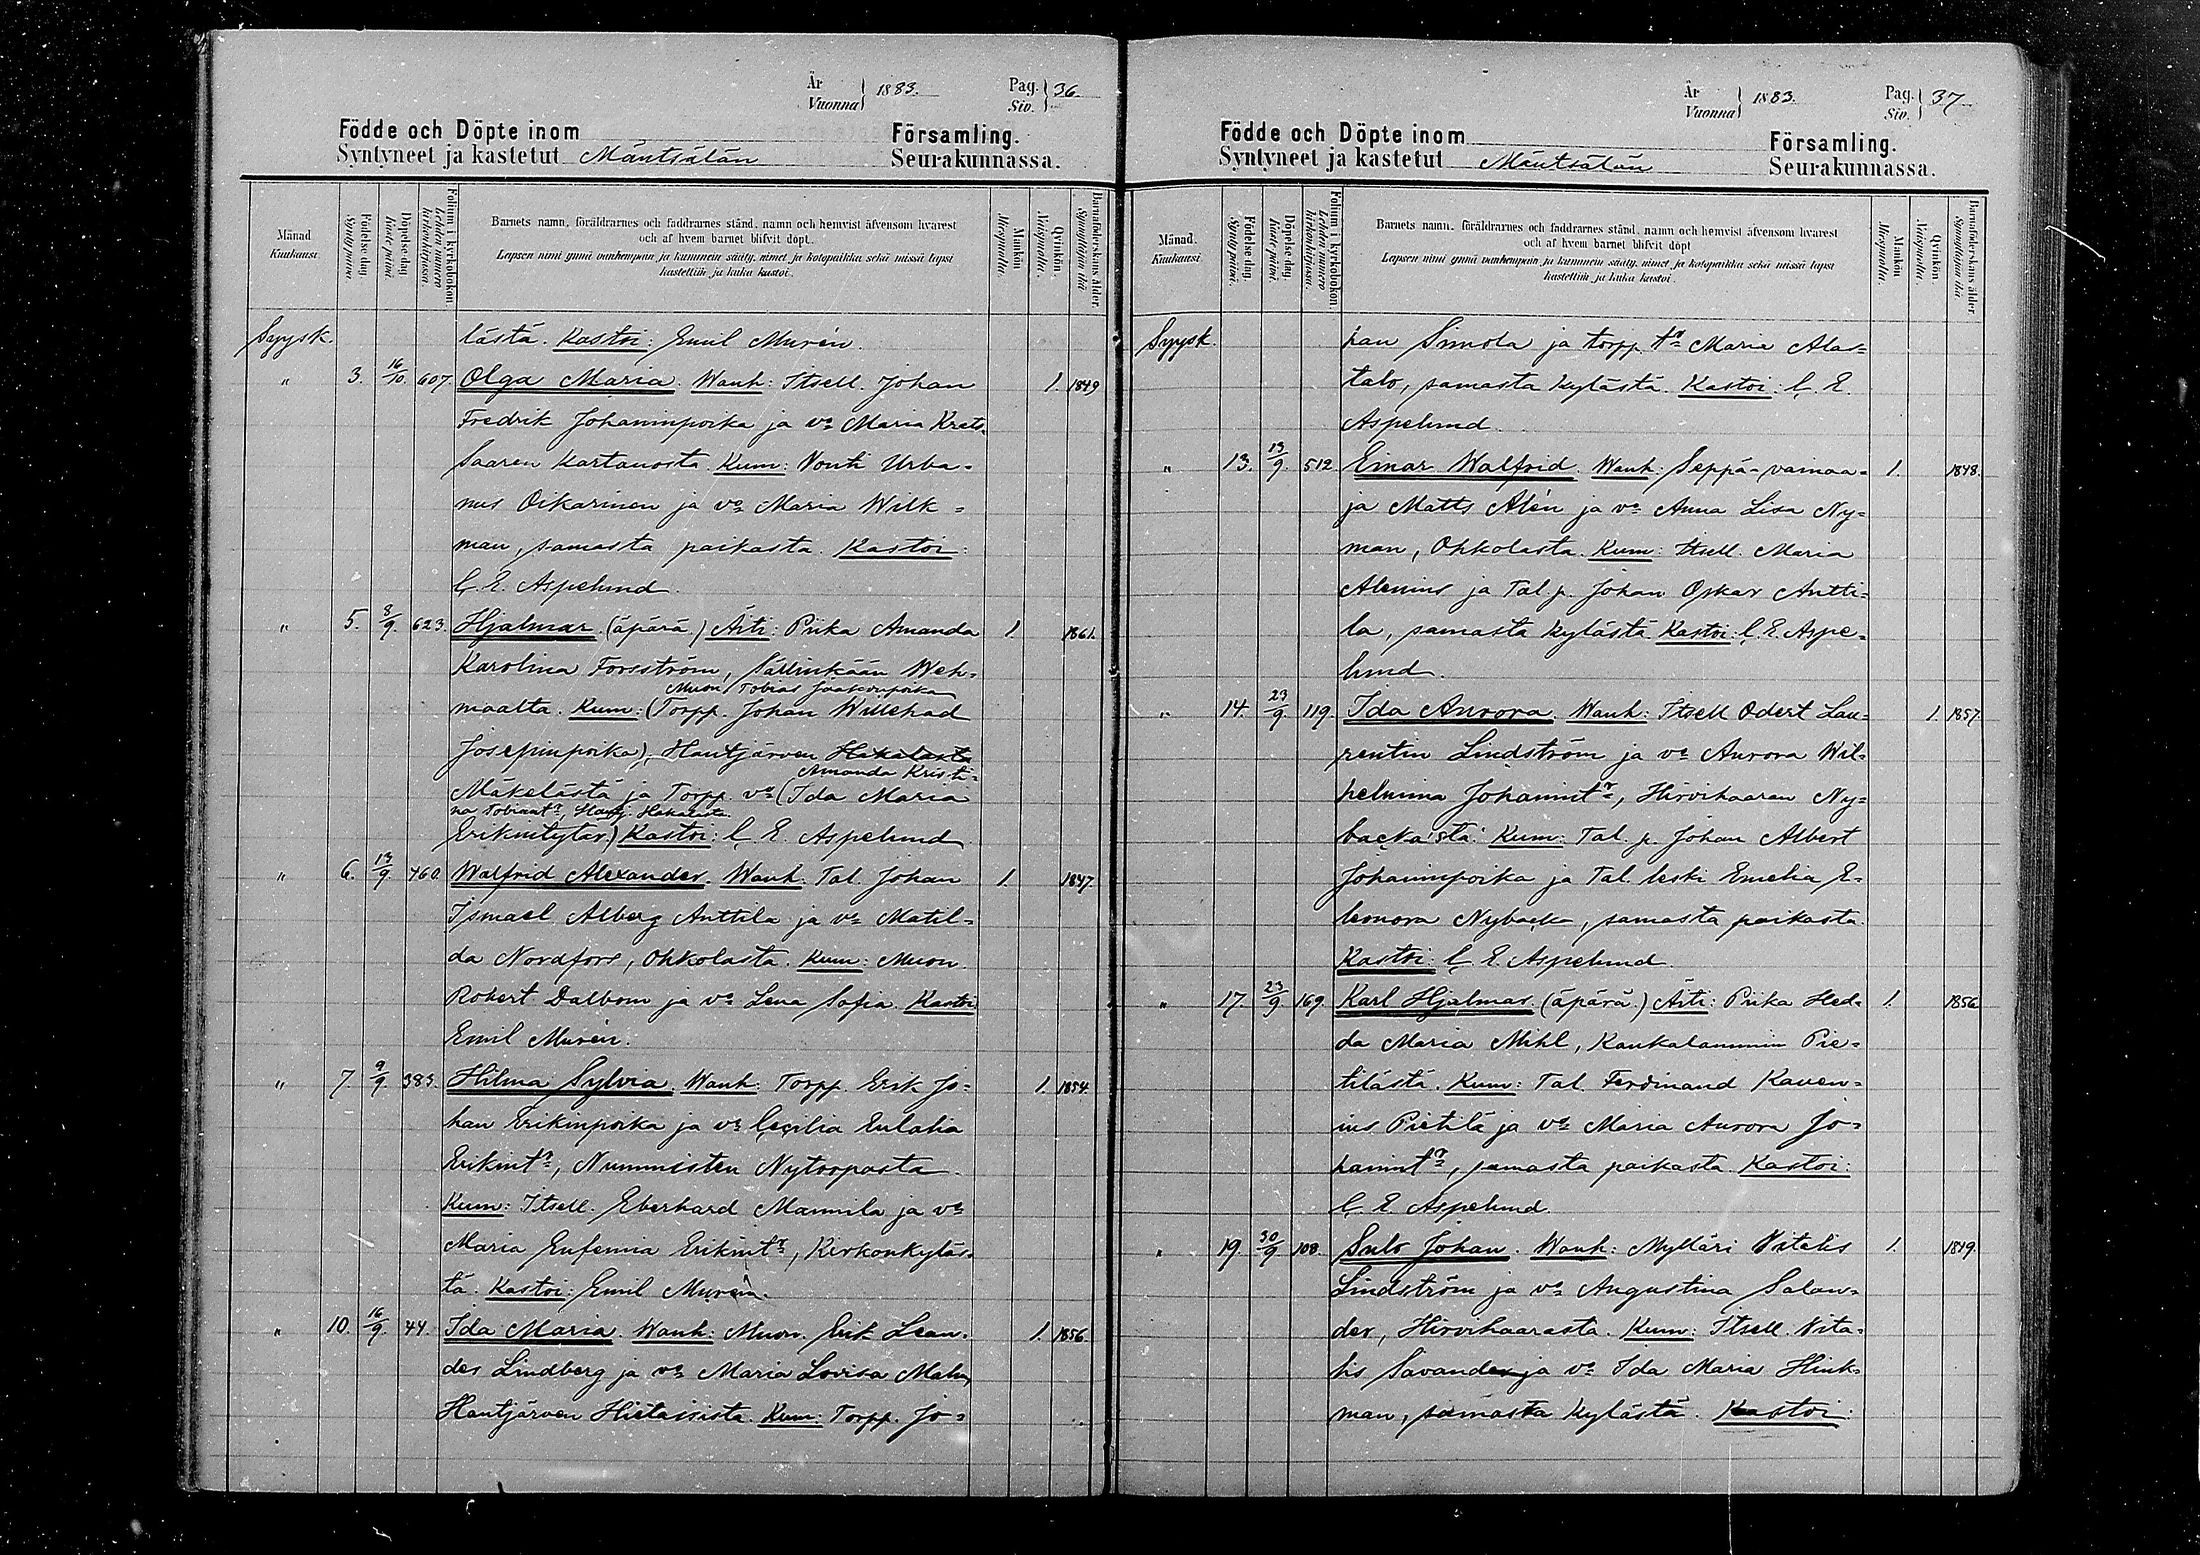 År
Vuonna } 1883.
Pag.
Siv. } 36
Födde och Döpte inom Församling.
Syntyneet ja kastetut Mäntsälän Seurakunnassa.
Månad.
Kuukausi.
Födelsedag.
Syntypäivä.
Döpelsedag.
Kastepäivä.
Folium i kyrkoboken.
Lehden numero kirkonkirjassa.
Barnets namn, föräldrarnes och faddrarnes stånd, namn och hemvist äfvensom hvarest
och af hvem barnet blifvit döpt.
Lapsen nimi ynnä vanhempain ja kummein sääty, nimet ja kotopaikka sekä missä lapsi
kastettiin ja kuka kastoi.
Mankön
Miespuolia.
Qvinkön.
Naispuolia.
Barnaföderskans ålder.
Synnyttäjän ikä
Syysk. lästä. Kastoi: Emil Murén.
" 3. 16/10. 607. Olga Maria. Wanh: Itsell. Johan 1. 1849
Fredrik Johaninpoika ja vo Maria Krets,
Saaren Kartanosta. Kum: Vouti Urba=
nus Oikarinen ja vo Maria Wilk=
man, samasta paikasta. Kastoi:
C. E. Aspelund.
" 5. 8/9. 623. Hjalmar (äpärä) Äiti: Piika Amanda 1. 1861.
Karolina Forsström, Sällinkään Weh=
Muon. Tobias Jaakonpoika
maalta. Kum: (Torpp. Johan Willehad
Josepinpoika), Hautjärven Hakalasta
Amanda Kristi=
Mäkelästä ja Torpp. vo (Ida Maria
na Tobiaat:r, Hautj. Hakalasta
Erikintytär) Kastoi: C. E. Aspelund
" 6. 13/9. 460. Walfrid Alexander. Wanh: Tal. Johan 1. 1847.
Ismael Alberg Anttila ja vo Matil=
da Nordfors, Ohkolasta. Kum: Muon.
Robert Dalbom ja vo Lena Sofia. Kastoi
Emil Murén.
" 7. 9/9. 383. Hilma Sylvia. Wanh: Torpp. Erik Jo= 1. 1854.
han Erikinpoika ja vo Cecilia Eulalia
Erikint:r, Nummisten Nytorpasta.
Kum: Itsell. Eberhard Mannila ja vo
Maria Eufemia Erikint:r, Kirkonkyläs=
tä. Kastoi: Emil Murén.
" 10. 16/9. 44. Ida Maria. Wanh: Muon. Erik Lean= 1. 1856
der Lindberg ja vo Maria Lovisa Malm,
Hautjärven Hietassista. Kum: Torpp. Jo=
År
Vuonna } 1883.
Pag.
Siv. } 37
Födde och Döpte inom Församling.
Syntyneet ja kastetut Mäntsälän Seurakunnassa.
Månad.
Kuukausi.
Födelsedag.
Syntypäivä.
Döpelsedag.
Kastepäivä.
Folium i kyrkoboken.
Lehden numero kirkonkirjassa.
Barnets namn, föräldrarnes och faddrarnes stånd, namn och hemvist äfvensom hvarest
och af hvem barnet blifvit döpt
Lapsen nimi ynnä vanhempain ja kummein sääty, nimet ja kotopaikka sekä missä lapsi
kastettiin ja kuka kastoi.
Mankön
Miespuolia.
Qvinkön.
Naispuolia.
Barnaföderskans ålder.
Synnyttäjän ikä
Syysk. han Simola ja torpp. t:r Maria Ala=
talo, samasta kylästä. Kastoi: C. E.
Aspelund.
" 13. 13/9. 512 Einar Walfrid. Wanh: Seppä-vainaa= 1. 1848.
ja Matts Alén ja vo Anna Lisa Ny=
man, Ohkolasta. Kum: Itsell. Maria
Alenius ja Tal. p. Johan Oskar Antti=
la, samasta kylästä Kastoi: C. E. Aspe=
lund.
" 14. 23/9 119. Ida Aurora. Wanh: Itsell Odert Lau= 1. 1857.
rentin Lindström ja vo Aurora Wil=
helmina Johanint:r, Hirvihaaran Ny=
backa'sta. Kum: Tal. p. Johan Albert
Johaninpoika ja Tal. leski Emelia E=
leonora Nybacka, samasta paikasta.
Kastoi: C. E. Aspelund.
" 17. 23/9 169. Karl Hjalmar (äpärä.) Äiti: Piika Hed= 1. 1856
da Maria Mihl, Kaukalammin Pie=
tilästä. Kum: Tal. Ferdinand Kaven=
ius Pietilä ja vo Maria Aurora Jo=
hanint:r, samasta paikasta. Kastoi:
C. E. Aspelund.
" 19. 30/9 108. Sulo Johan. Wanh: Mylläri Vitalis 1. 1849.
Lindström ja vo Augustina Salan=
der, Hirvihaarasta. Kum: Itsell. Vita=
lis Savander ja vo Ida Maria Hink=
man, samasta kylästä. Kastoi: